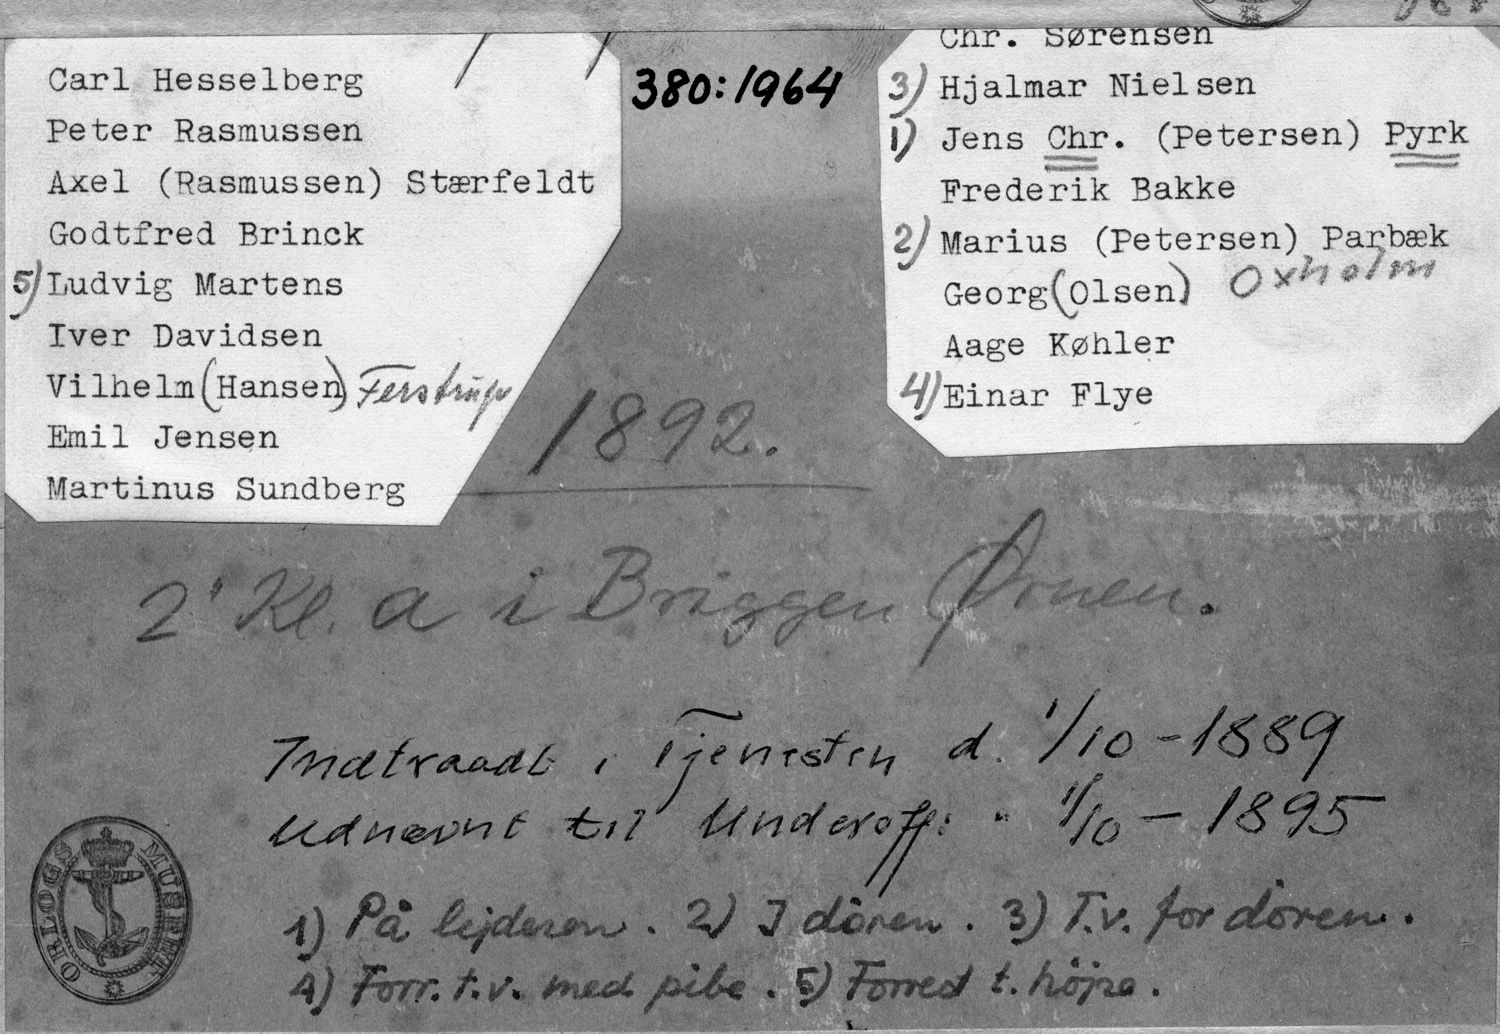 Carl Hesselberg
Peter Rasmussen
Axel (Rasmussen) Stærfeldt
Godtfred Brinck
5) Ludvig Martens
Iver Davidsen
Vilhelm (Hansen) Ferstrup
Emil Jensen
Martinus Sundberg
380:1964
Chr. Sørensen
3) Hjalmar Nielsen
1) Jens Chr. (Petersen) Pyrk
Frederik Bakke
2) Marius (Petersen) Parbæk
Georg (Olsen) Oxholm
Aage Køhler
4) Einar Flye
1892.
2' Kl. a i Briggen Ørnen.
Indtraadt i Tjenesten d. 1/10 - 1889
Udnævnt til Underoff: " 1/10 - 1895
1) På lejderen. 2) I dören. 3) T.v. for dören.
4) Forr. t.v. med pibe. 5) Forrest t. höjre.
ORLOGS MUSEET